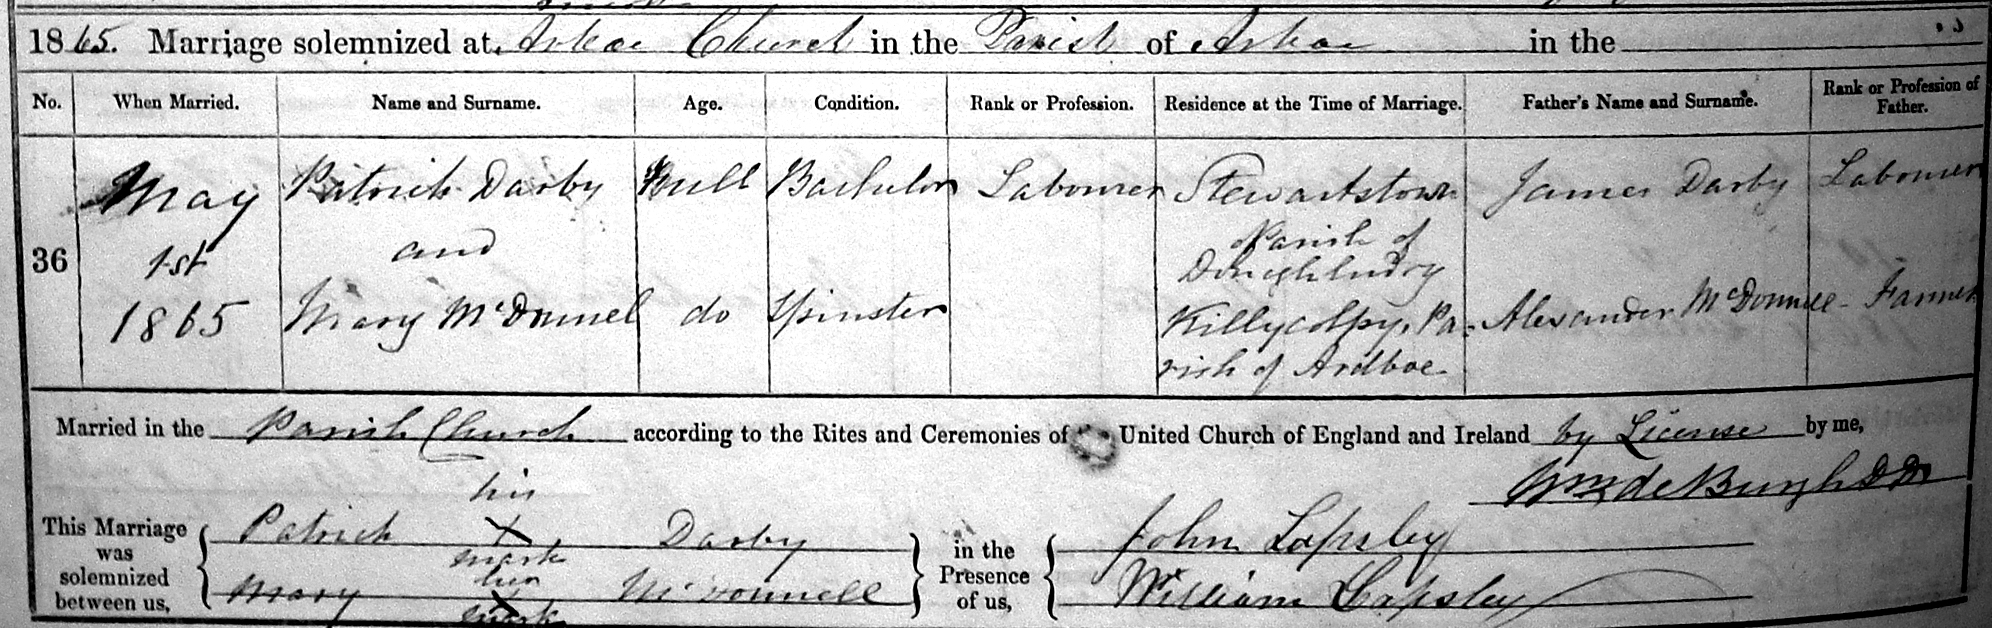 1865. Marriage solemnized at Arboe Church in the Parish of Arboe in the
No. When Married. Name and Surname. Age. Condition. Rank or Profession. Residence at the Time of Marriage. Father's Name and Surname. Rank or Profession of Father.
May Patrick Darby Full Bachelor Labourer Stewartstown James Darby Labourer
36 1st and Parish of
Donaghendry
1865 Mary McDonnel do Spinster Killycolpy, Pa- Alexander McDonnell Farmer
rish of Ardboe
Married in the Parish Church according to the Rites and Ceremonies of United Church of England and Ireland by License by me,
Wm de Burgh DD
his
This Marriage was solemnized between us, Patrick X Darby in the Presence of us, John Lapsley
mark
her
Mary X McDonnell William Lapsley
mark